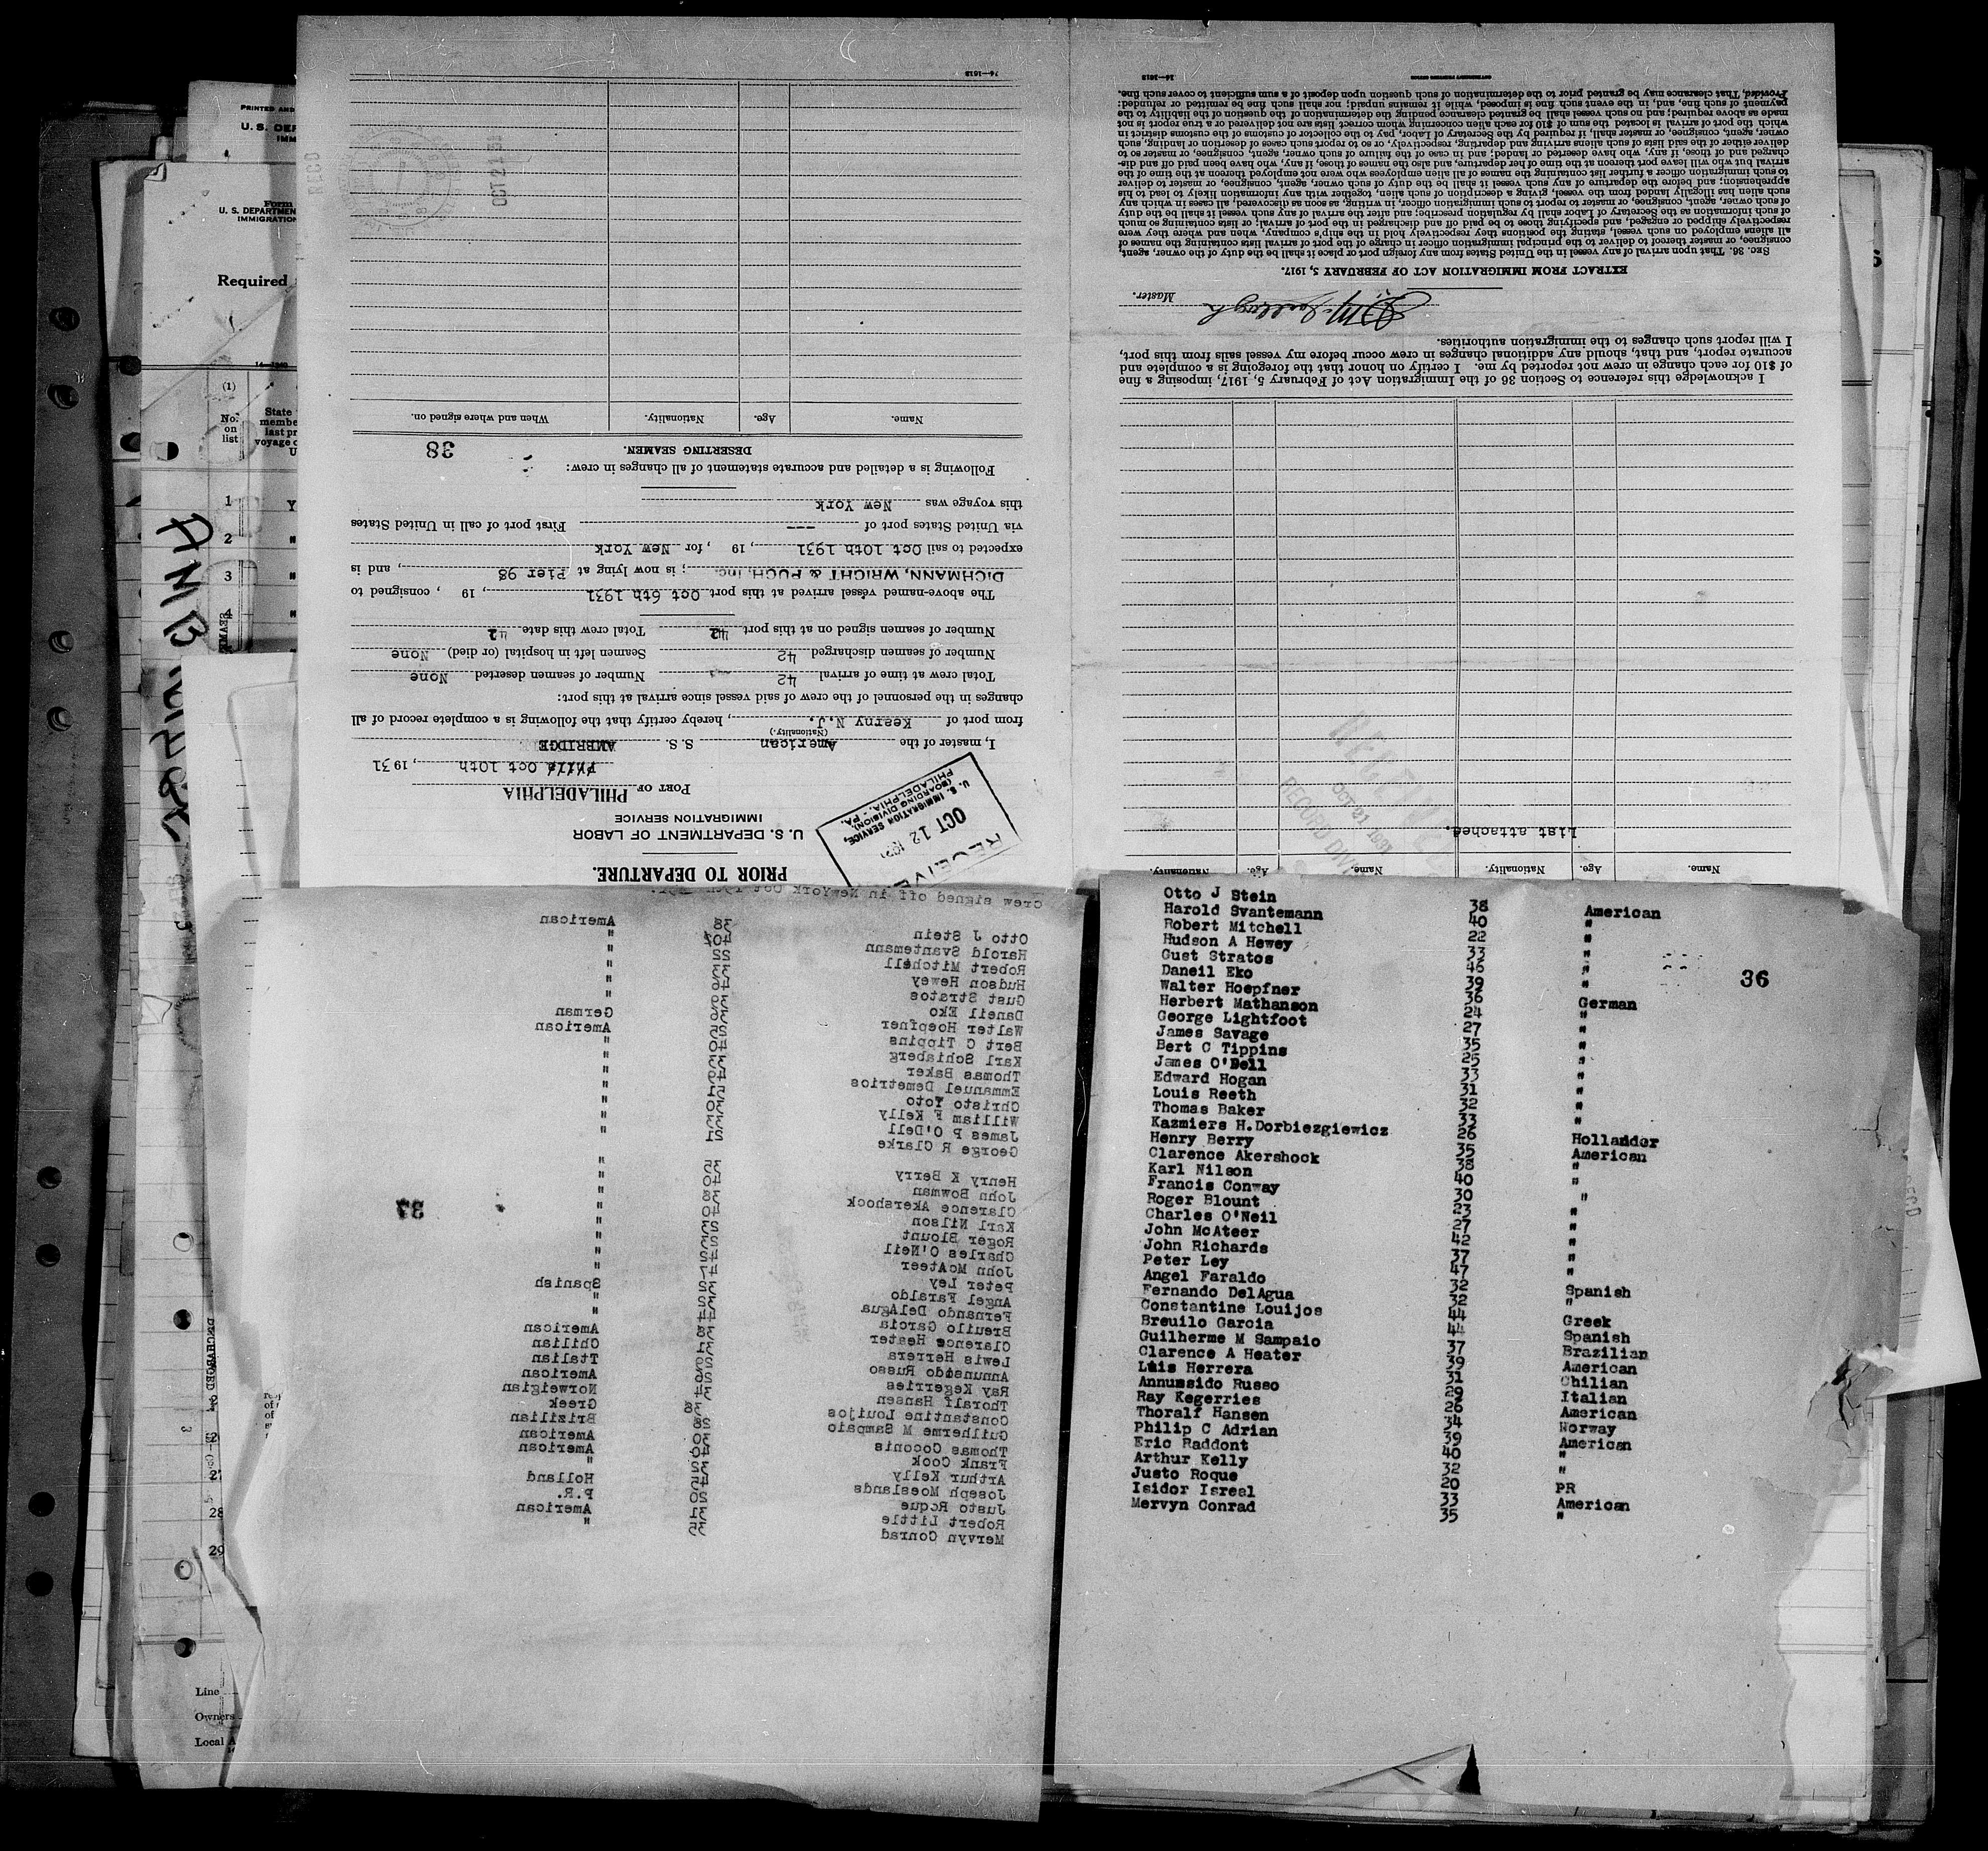 PRIOR TO DEPARTURE.
U. S. DEPARTMENT OF LABOR
IMMIGRATION SERVICE
PORT OF PHILADELPHIA
Oct 10th, 1931
U. S. IMMIGRATION SERVICE,
(BOARDING DIVISION)
PHILADELPHIA, PA.
OCT 12 1931
I, master of the American S. S. AMBRIDGE
(Nationality.)
from port of Kearny N.J., hereby certify that the following is a complete record of all
changes in the personnel of the crew of said vessel since arrival at this port:
Total crew at time of arrival 42 Number of seamen deserted None
Number of seamen discharged 42 Seamen left in hospital (or died) None
Number of seamen signed on at this port 42 Total crew this date 42
The above-named vessel arrived at this port Oct 6th 1931, 19 , consigned to
DICHMANN, WRIGHT & PUGH, Inc.; is now lying at Pier 98, and is
expected to sail Oct 10th 1931, 19 , for New York
via United States port of --- First port of call in United States
this voyage was New York
Following is a detailed and accurate statement of all changes in crew:
DESERTING SEAMEN.
38
Name. Age. Nationality. When and where signed on.
OCT 21 31
REC'D
14—1613
Name. Age. Nationality. Name. Age. Nationality.
List attached.
OCT 21 1931
RECORD DIV
I acknowledge this reference to Section 36 of the Immigration Act of February 5, 1917, imposing a fine
of $10 for each change in crew not reported by me. I certify on honor that the foregoing is a complete and
accurate report, and that, should any additional changes in crew occur before my vessel sails from this port,
I will report such changes to the immigration authorities.
Master.
EXTRACT FROM IMMIGRATION ACT OF FEBRUARY 5, 1917.
SEC. 36. That upon arrival of any vessel in the United States from any foreign port or place it shall be the duty of the owner, agent,
consignee, or master thereof to deliver to the principal immigration officer in charge of the port of arrival lists containing the names of
all aliens employed on such vessel, stating the positions they respectively hold in the ship's company, when and where they were
respectively shipped or engaged, and specifying those to be paid off and discharged in the port of arrival; or lists containing so much
of such information as the Secretary of Labor shall by regulation prescribe; and after the arrival of any such vessel it shall be the duty
of such owner, agent, consignee, or master to report to such immigration officer, in writing, as soon as discovered, all cases in which any
such alien has illegally landed from the vessel, giving a description of such alien, together with any information likely to lead to his
apprehension; and before the departure of any such vessel it shall be the duty of such owner, agent, consignee, or master to deliver
to such immigration officer a further list containing the names of all alien employees who were not employed thereon at the time of the
arrival but who will leave port thereon at the time of her departure, and also the names of those, if any, who have been paid off and dis-
charged and of those, if any, who have deserted or landed; and in case of the failure of such owner, agent, consignee, or master so to
deliver either of the said lists of such aliens arriving and departing, respectively, or so to report such cases of desertion or landing, such
owner, agent, consignee, or master shall, if required by the Secretary of Labor, pay to the collector of customs of the customs district in
which the port of arrival is located the sum of $10 for each alien concerning whom correct lists are not delivered or a true report is not
made as above required; and no such vessel shall be granted clearance pending the determination of the question of the liability to the
payment of such fine, and, in the event such fine is imposed, while it remains unpaid; nor shall such fine be remitted or refunded:
Provided, That clearance may be granted prior to the determination of such question upon deposit of a sum sufficient to cover such fine.
14—1613
GOVERNMENT PRINTING OFFICE
Crew signed off in NewYork Oct
Otto J Stein 38 American
Harold Svantemann 40 "
Robert Mitchell 22 "
Hudson Hewey "
Gust Stratos "
Daneil Eko "
Walter Hoepfner German
Bert C Tippins American
Karl Schiaberg "
Thomas Baker "
Emmanuel Demetrios "
Christo Toto "
William F Kelly "
James P O'Dell "
George R Clarke "
Henry K Berry "
John Bowman "
Clarence Akershock "
Karl Nilson "
Roger Blount "
Charles O'Neil "
John McAteer "
Peter Ley "
Angel Faraldo Spanish
Fernando DelAgua "
Breuilo Garcia "
Clarence Heater American
Lewis Herrera Chilian
Annunsodo Russo Ttalian
Ray Kegerries American
Thoralf Hansen Norweigian
Constantine Louijos Greek
Guilherme M Sampaio Brizilian
Thomas Coconis American
Frank Cook American
Arthur Kelly "
Joseph Moeslands Holland
Justo Roque P.R.
Robert Little American
Mervyn Conrad "
37
Otto J Stein 38 American
Harold Svantemann 40 "
Robert Mitchell 22 "
Hudson A Hewey 33 "
Gust Stratos 46 "
Daneil Eko 39 "
Walter Hoepfner 36 German
Herbert Mathanson 24 "
George Lightfoot 27 "
James Savage 35 "
Bert C Tippins 25 "
James O'Dell 33 "
Edward Hogan 31 "
Louis Reeth 32 "
Thomas Baker 33 "
Kazmiers H.Dorbiezgiewicz 26 Hollander
Henry Berry 35 American
Clarence Akershock 38 "
Karl Nilson 40 "
Francis Conway 30 "
Roger Blount 23 "
Charles O'Neil 27 "
John McAteer 42 "
John Richards 37 "
Peter Ley 47 "
Angel Faraldo 32 Spanish
Fernando DelAgua 32 "
Constantine Louijos 44 Greek
Breuilo Garcia 44 Spanish
Guilherme M Sampaio 37 Brazilian
Clarence A Heater 39 American
Luis Herrera 31 Chilian
Annunsido Russo 29 Italian
Ray Kegerries 26 American
Thoralf Hansen 34 Norway
Philip C Adrian 39 American
Eric Raddont 40 "
Arthur Kelly 32 "
Justo Roque 20 PR
Isidor Isreal 33 American
Mervyn Conrad 35 "
36
PRINTED AND
U. S. DEP
IMM
Form
U. S. DEPARTMEN
IMMIGRATION
Required
(1)
No. on list
State
membe
last pr
voyage o
U
1
2
3
4
28
29
Line
Owners
Local A